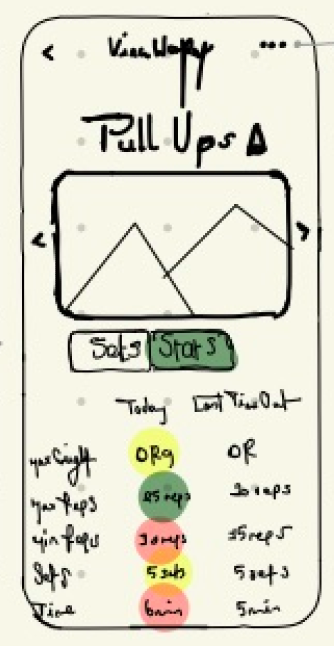 <
...
Pull Ups Δ
< >
Sets Stats
Today Last Time Out
max weight 0Kg 0K
max Reps 25 reps 20 reps
min Reps 10 reps 15 reps
Sets 5 sets 5 sets
Time 6min 5min